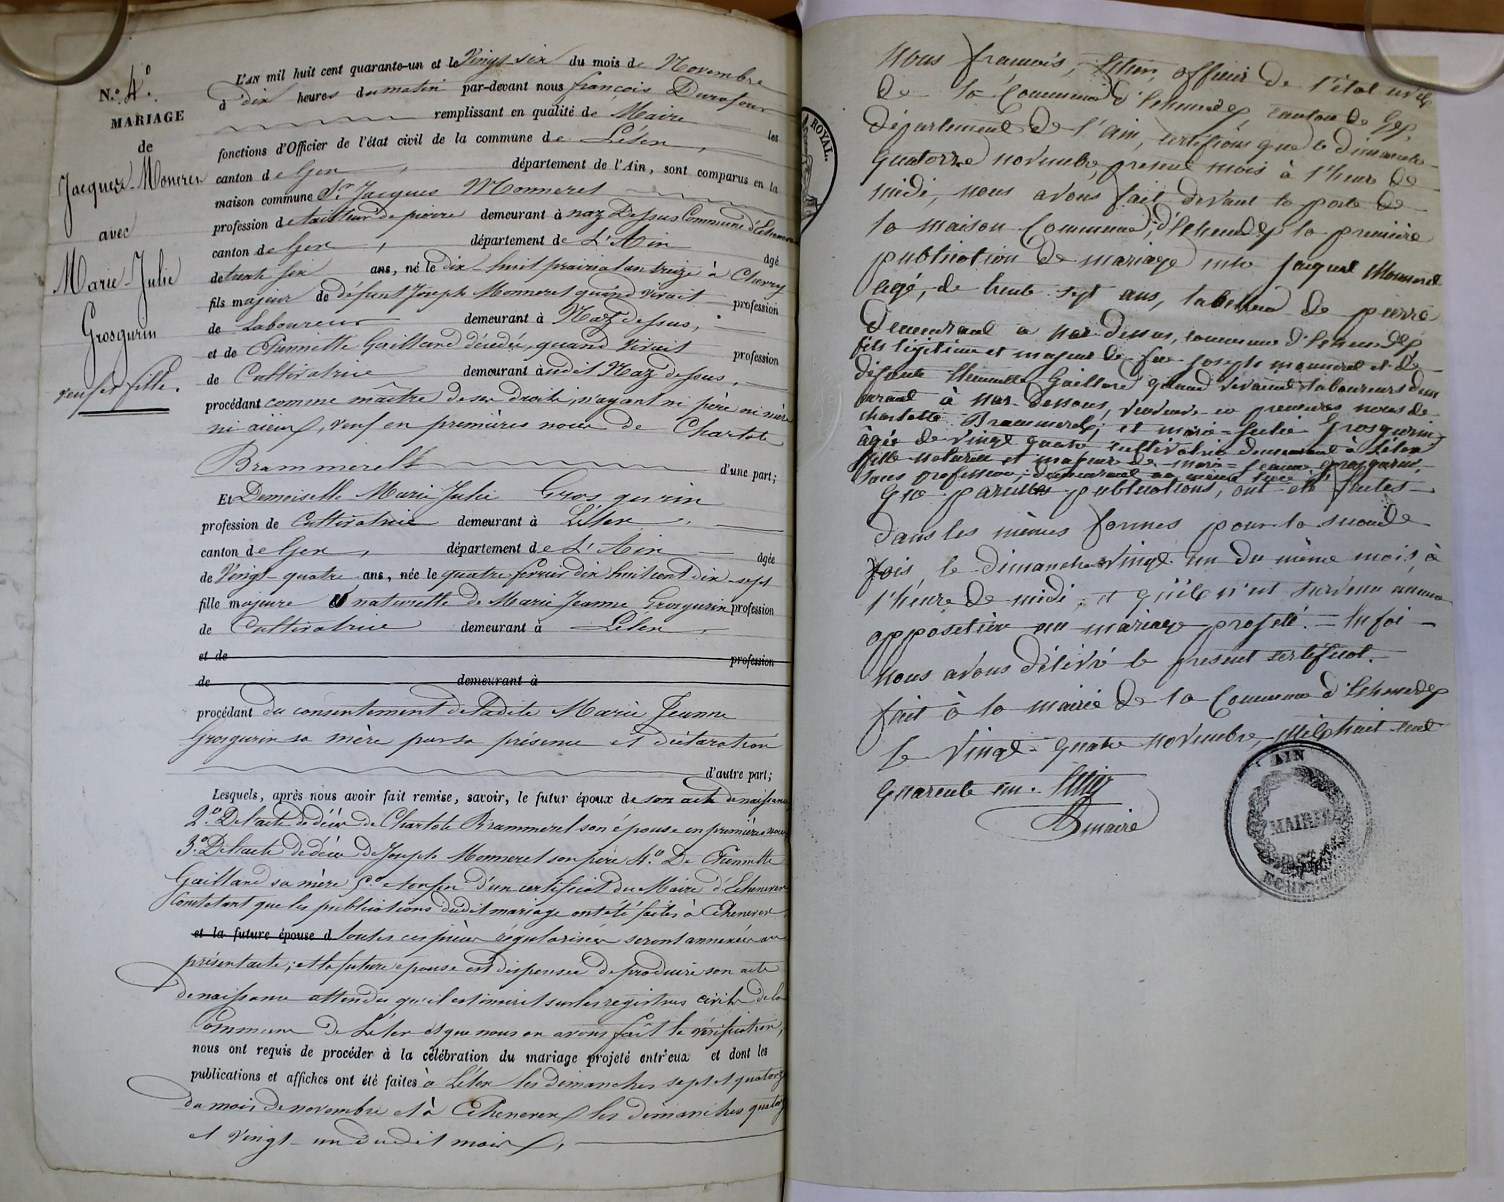 N.º 4º
MARIAGE
de
Jacques Moneret
avec
Marie-Julie
Grosgurin
veuf et fille.
L'AN mil huit cent quarante-un et le Vingt six du mois de Novembre
à dix heures du matin par-devant nous françois Durafour
remplissant en qualité de Maire les
fonctions d'Officier de l'état civil de la commune de Lélex,
canton de Gex, département de l'Ain, sont comparus en la
maison commune Sr. Jacques Monneret
profession de tailleur de pierre demeurant à naz Dessus Commune d'Echenevex
canton de Gex, département de L'Ain âgé
de trente six ans, né le dix-huit prairial an treize à Chevry
fils majeur de défunt Joseph Monneret quand vivait profession
de Laboureur demeurant à Naz dessus,
et de Etiennette Gaillard décédée, quand vivait profession
de Cultivatrice demeurant audit Naz dessus,
procédant comme maître de ses droits, n'ayant ni père ni mère
ni aieux, veuf en premières noces de Charlote
Brammerelt d'une part;
Et Demoiselle Marie Julie Grosgurin
profession de Cultivatrice demeurant à Lélex,
canton de Gex, département de L'Ain âgée
de Vingt-quatre ans, née le quatre fevrier dix huit cent dix-sept
fille majeure et naturelle de Marie Jeanne Grosgurin profession
de Cultivatrice demeurant à Lélex,
et de profession
de demeurant à
procédant du consentement de ladite Marie Jeanne
Grosgurin sa mère par sa présence et déclaration
d'autre part;
Lesquels, après nous avoir fait remise, savoir, le futur époux de son acte de naissance
2.º De l'acte de décès de Charlote Brammerel son épouse en premières noces
3.º De l'acte de décès de Joseph Monneret son père 4.º De Etiennette
Gaillard sa mère 5.º et enfin d'un certificat du Maire d'Echenevex
Constatant que les publications dudit mariage ont été faites à Echenevex
et la future épouse d toutes ces pièces régularisées seront annexées au
présent acte; et la future épouse est dispensée de produire son acte
de naissance attendu qu'il est inscrit sur les registres civils de la
Commune de Lélex et que nous en avons fait la vérification,
nous ont requis de procéder à la célébration du mariage projeté entr'eux et dont les
publications et affiches ont été faites à Lélex les dimanches sept et quatorze
du mois de novembre et à Echenevex les dimanches quatorze
et vingt-un dudit mois,
ROYAL.
Nous françois, officier de l'état civil
de la Commune d'Echenevex, canton de Gex,
département de l'Ain, certifions que le dimanche
quatorze novembre, present mois à l'heure de
midi, nous avons fait devant la porte de
la maison Commune, d'Echenevex la première
publication de mariage entre Jacques Monneret
agé, de trente-sept ans, tailleur de pierre
Demeurant à Naz-Dessus, commune d'Echenevex
fils légitime et majeur de feu Joseph monneret et de
défunte Etiennette Gaillard quand vivaient laboureurs demeurant
à Naz-Dessous, veuf en premières noces de
charlotte Brammerel; et marie-Julie Grosgurin
âgée de vingt quatre cultivatrice demeurant à Lélex
fille naturelle et majeure de marie-jeanne grosgurin,
sans profession, demeurant au même lieu.
Que pareilles publications, ont été faites
dans les mêmes formes pour la seconde
fois le dimanche vingt un du même mois, à
l'heure de midi, et qu'il n'est survenu aucune
opposition au mariage projeté. = En foi
nous avons délivré le présent certificat.
fait à la mairie de la Commune d'Echenevex
le vingt-quatre novembre, mil huit cent
quarente un.
maire
AIN
MAIRIE